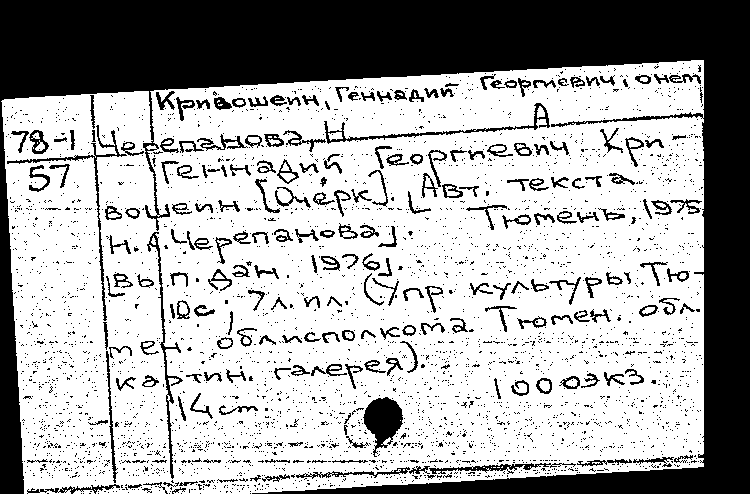 Кривошеин, Геннадий Георгиевич, о нем
78-1 Черепанова, Н А
57 Геннадий Георгиевич Кри-
вошеин. [Очерк]. [Авт. текста
Н.А. Черепанова]. Тюмень, 1975,
[Вып. дан. 1976].
10с; 7л. ил. (Упр. культуры Тю-
мен. облисполкома. Тюмен. обл.
картин. галерея).
14 cm. 1000экз.